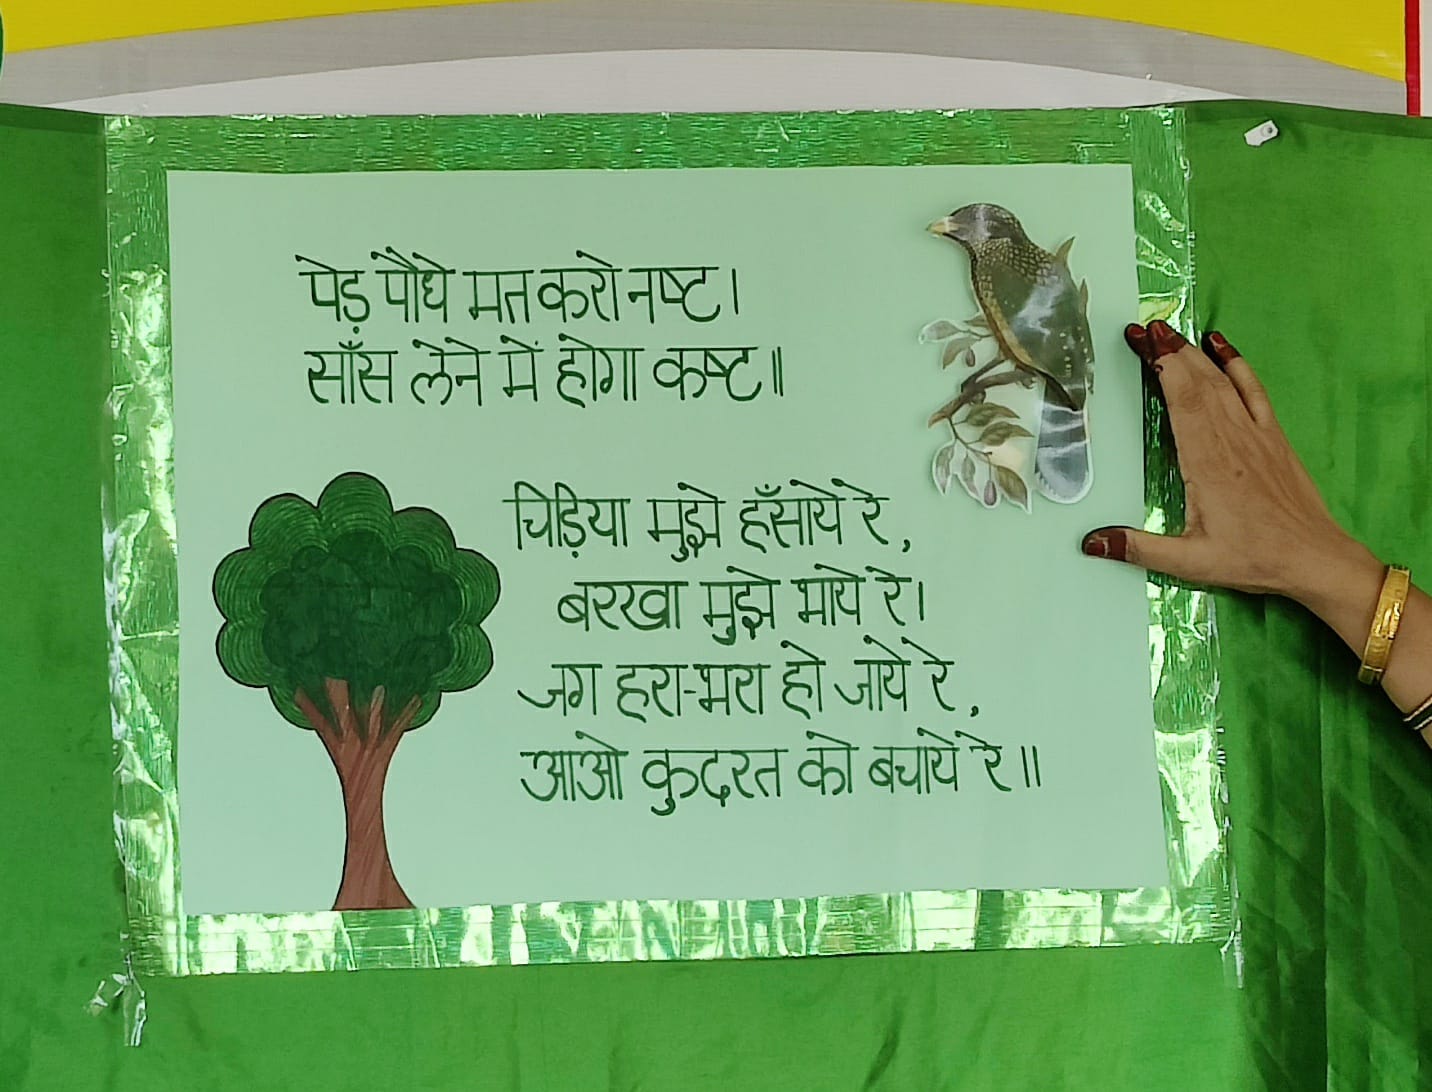 पेड़ पौधे मत करो नष्ट।
साँस लेने में होगा कष्ट॥
चिड़िया मुझे हँसाये रे,
बरखा मुझे भाये रे।
जग हरा-भरा हो जाये रे,
आओ कुदरत को बचाये रे॥